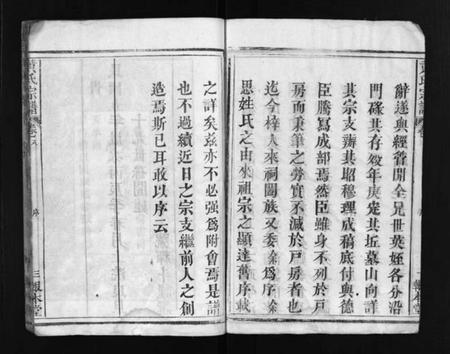 辭遂與經晋開全兄世英姪各分沿
門碌其存殁年庚定其坵墓山向詳
其宗支辨其昭穆理成稿底付與德
臣騰寫成部焉然臣雖身不列於戸
房而秉筆之勞實不減於戸房者也
迄今梓人來祠闔族又委余爲序余
思姓氏之由來祖宗之顯達舊序載
之詳矣兹亦不必強爲附會焉是譜
也不過續近日之宗支繼前人之創
造焉斯已耳敢以序云
氏宗譜
卷
序
三槐堂